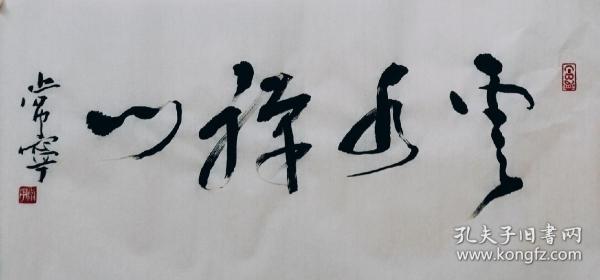 云水禅心
常宁
孔夫子旧书网
www.kongfz.com